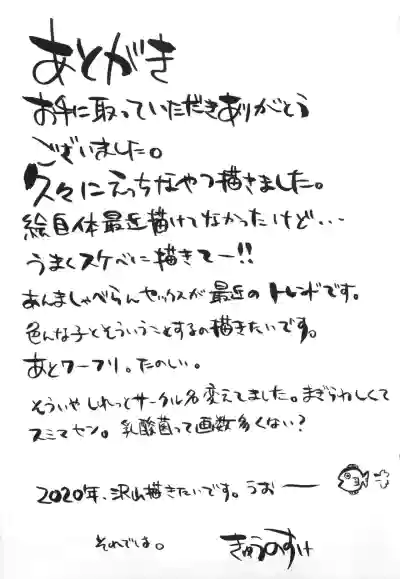 あとがき
お手に取っていただきありがとう
ございました。
久々にえっちなやつ描きました。
絵自体最近描けてなかったけど...
うまくスケベに描きてー!!
あんましゃべらんセックスが最近のトレンドです。
色んな子とそういうことするの描きたいです。
あとワーフリ。たのしい。
そういやしれっとサークル名変えてました。まぎらわしくて
スミマセン。乳酸菌って画数多くない?
2020年、沢山描きたいです。うおー
それでは。
きゅうのすけ